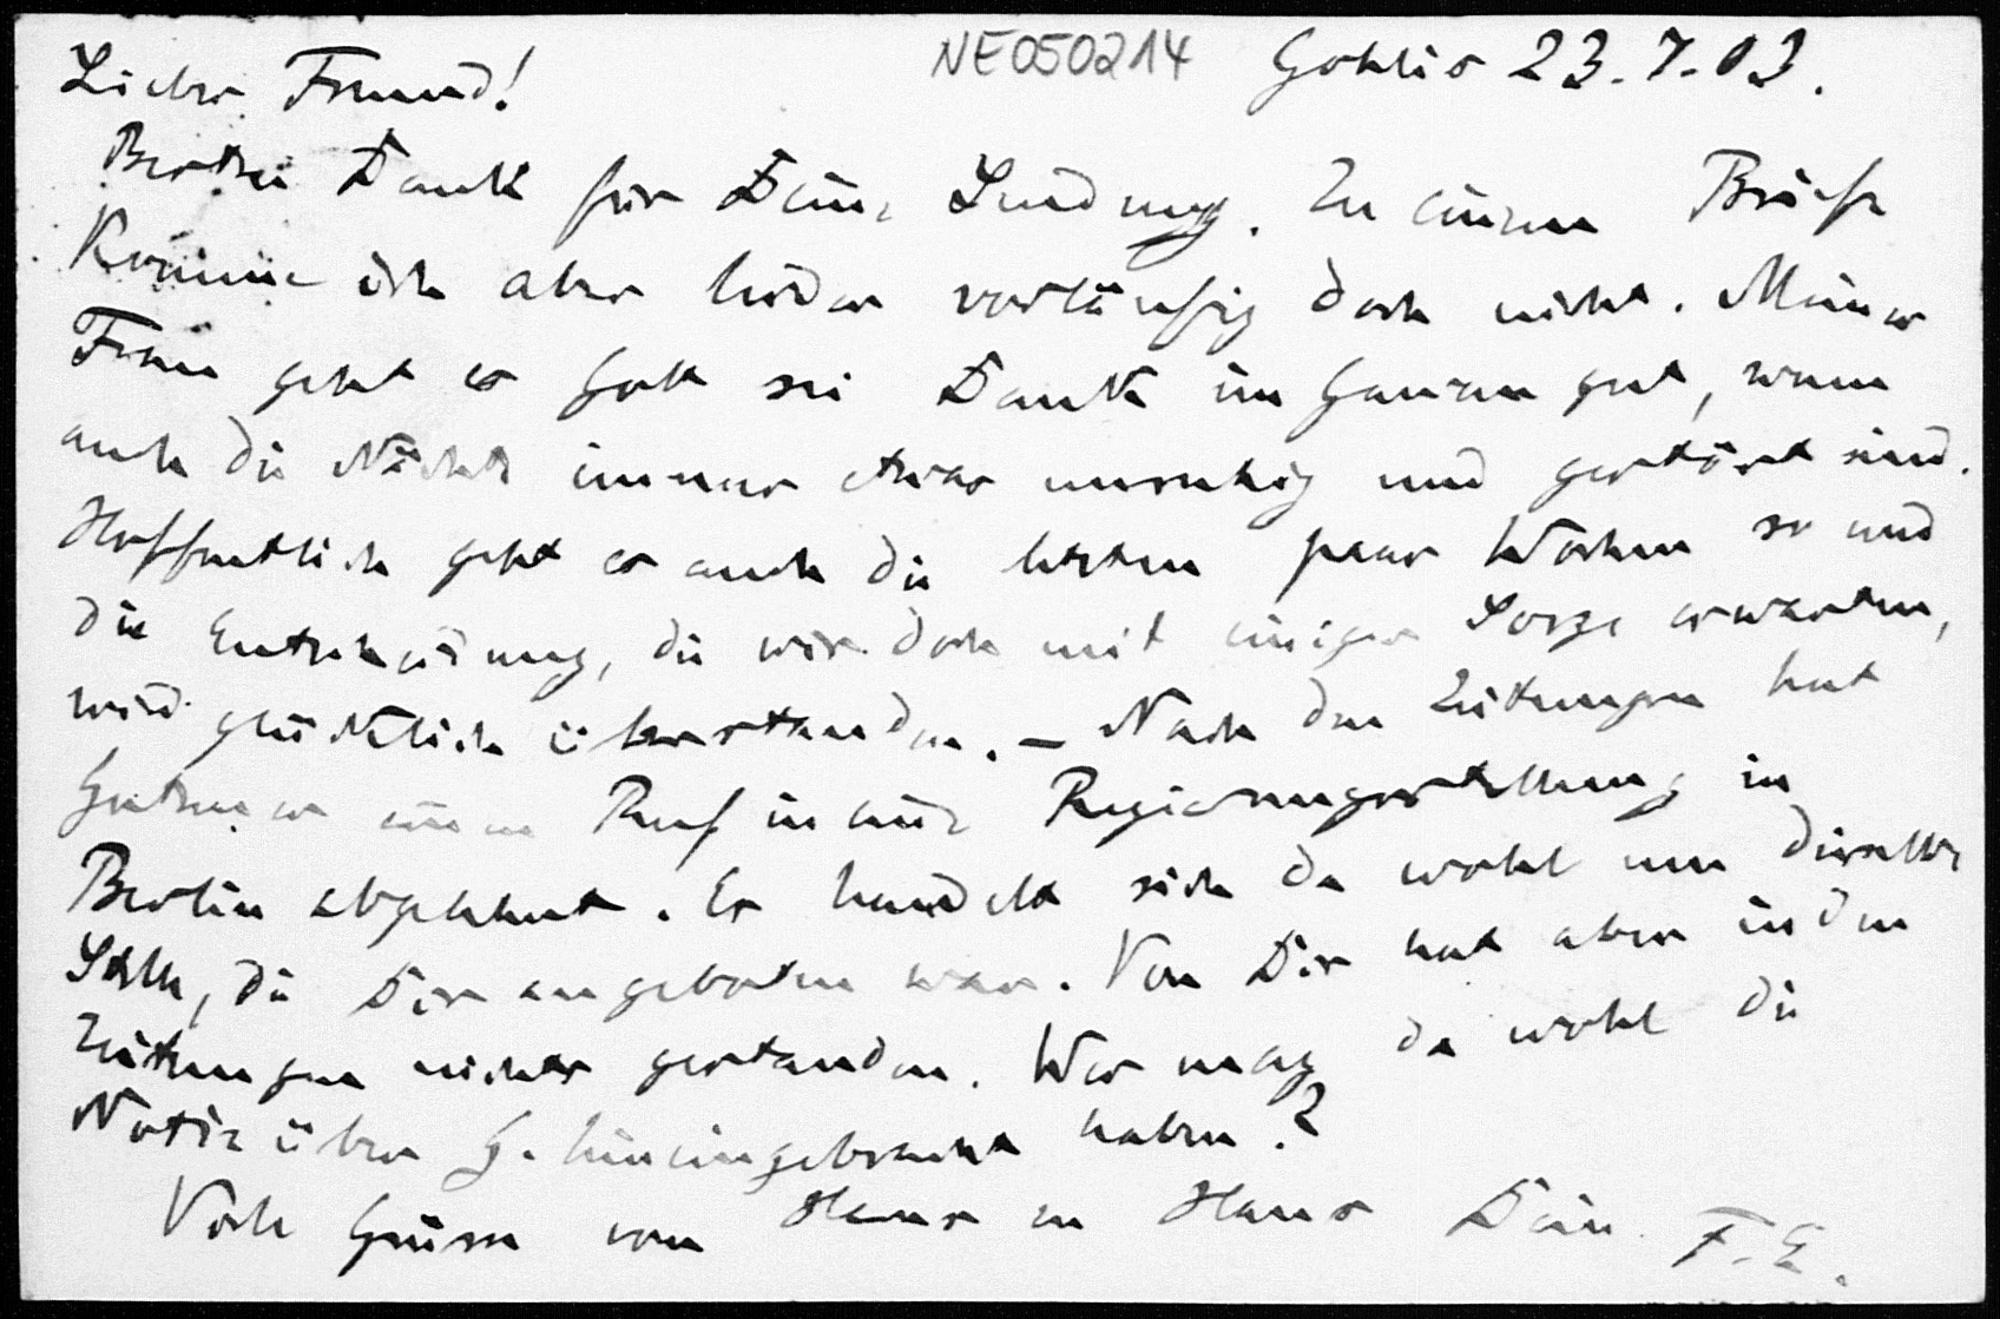 NE050214
Gohlis 23.7.03.
Lieber Freund!
Besten Dank für Deine Sendung. Zu einem Briefe
komme ich aber leider vorläufig doch nicht. Meiner
Frau geht es Gott sei Dank im Ganzen gut, wenn
auch die Nächte immer etwas unruhig und gestört sind.
Hoffentlich geht es auch die letzten paar Wochen so und
die Entscheidung, die wir doch mit einiger Sorge erwarten,
wird glücklich überstanden. – Nach den Zeitungen hat
Gutzmer einen Ruf in eine Regierungsstellung in
Berlin abgelehnt. Es handelt sich da wohl um dieselbe
Stelle, die Dir angeboten war. Von Dir hat aber in den
Zeitungen nichts gestanden. Wer mag da wohl die
Notiz über G. hineingebracht haben?
Viele Grüsse von Haus zu Haus Dein F. E.